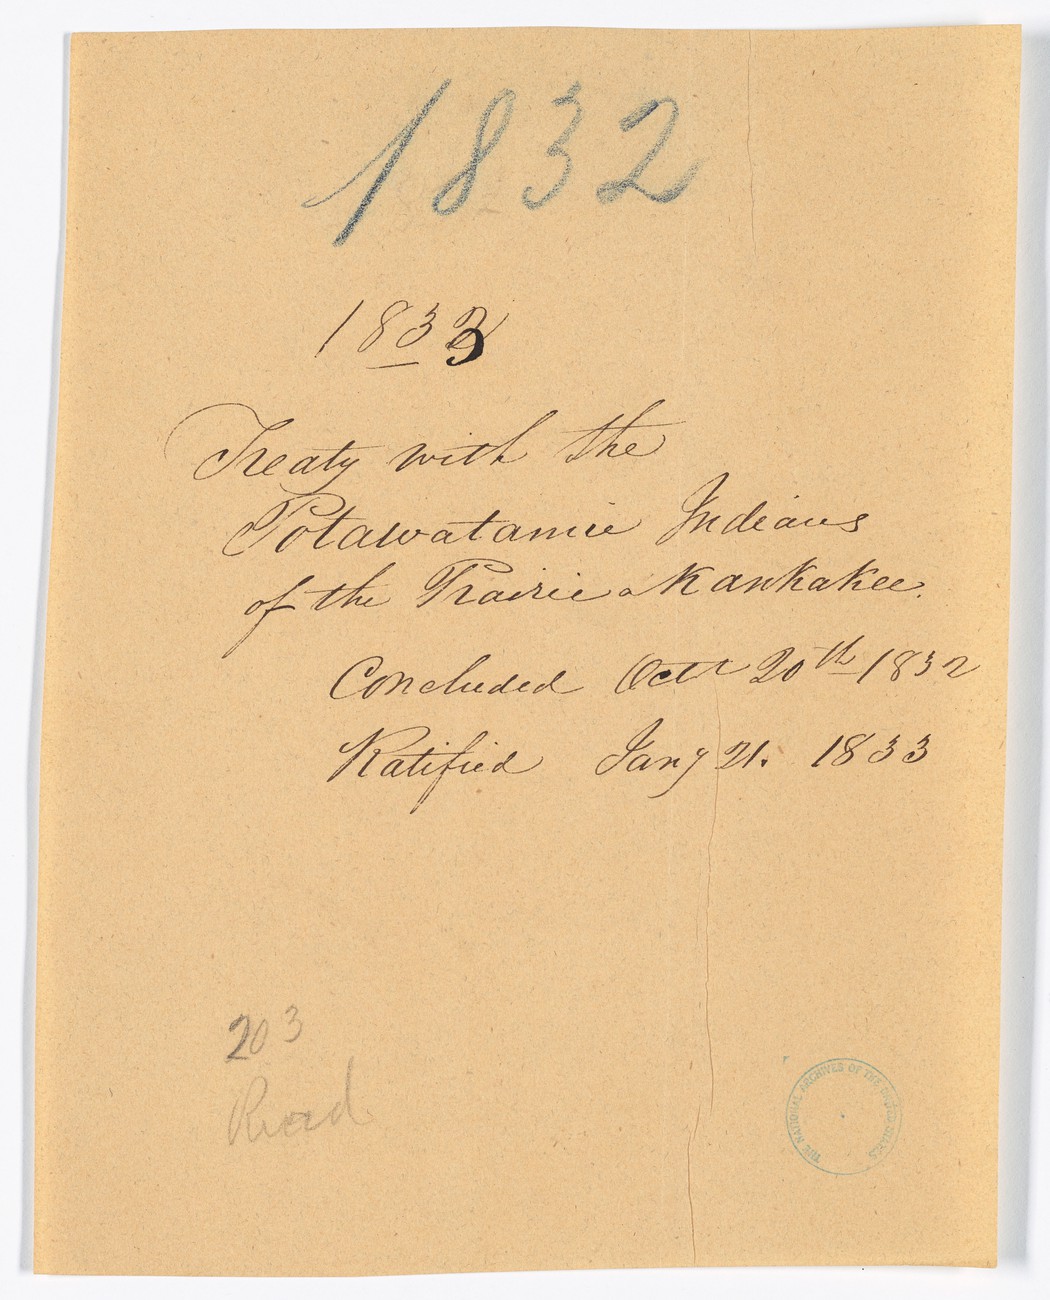 1832
1833
Treaty with the
Potawatamie Indians
of the Prairie & Kankakee.
Concluded Octr 20th 1832
Ratified Jany 21. 1833
203
Read
THE NATIONAL ARCHIVES OF THE UNITED STATES